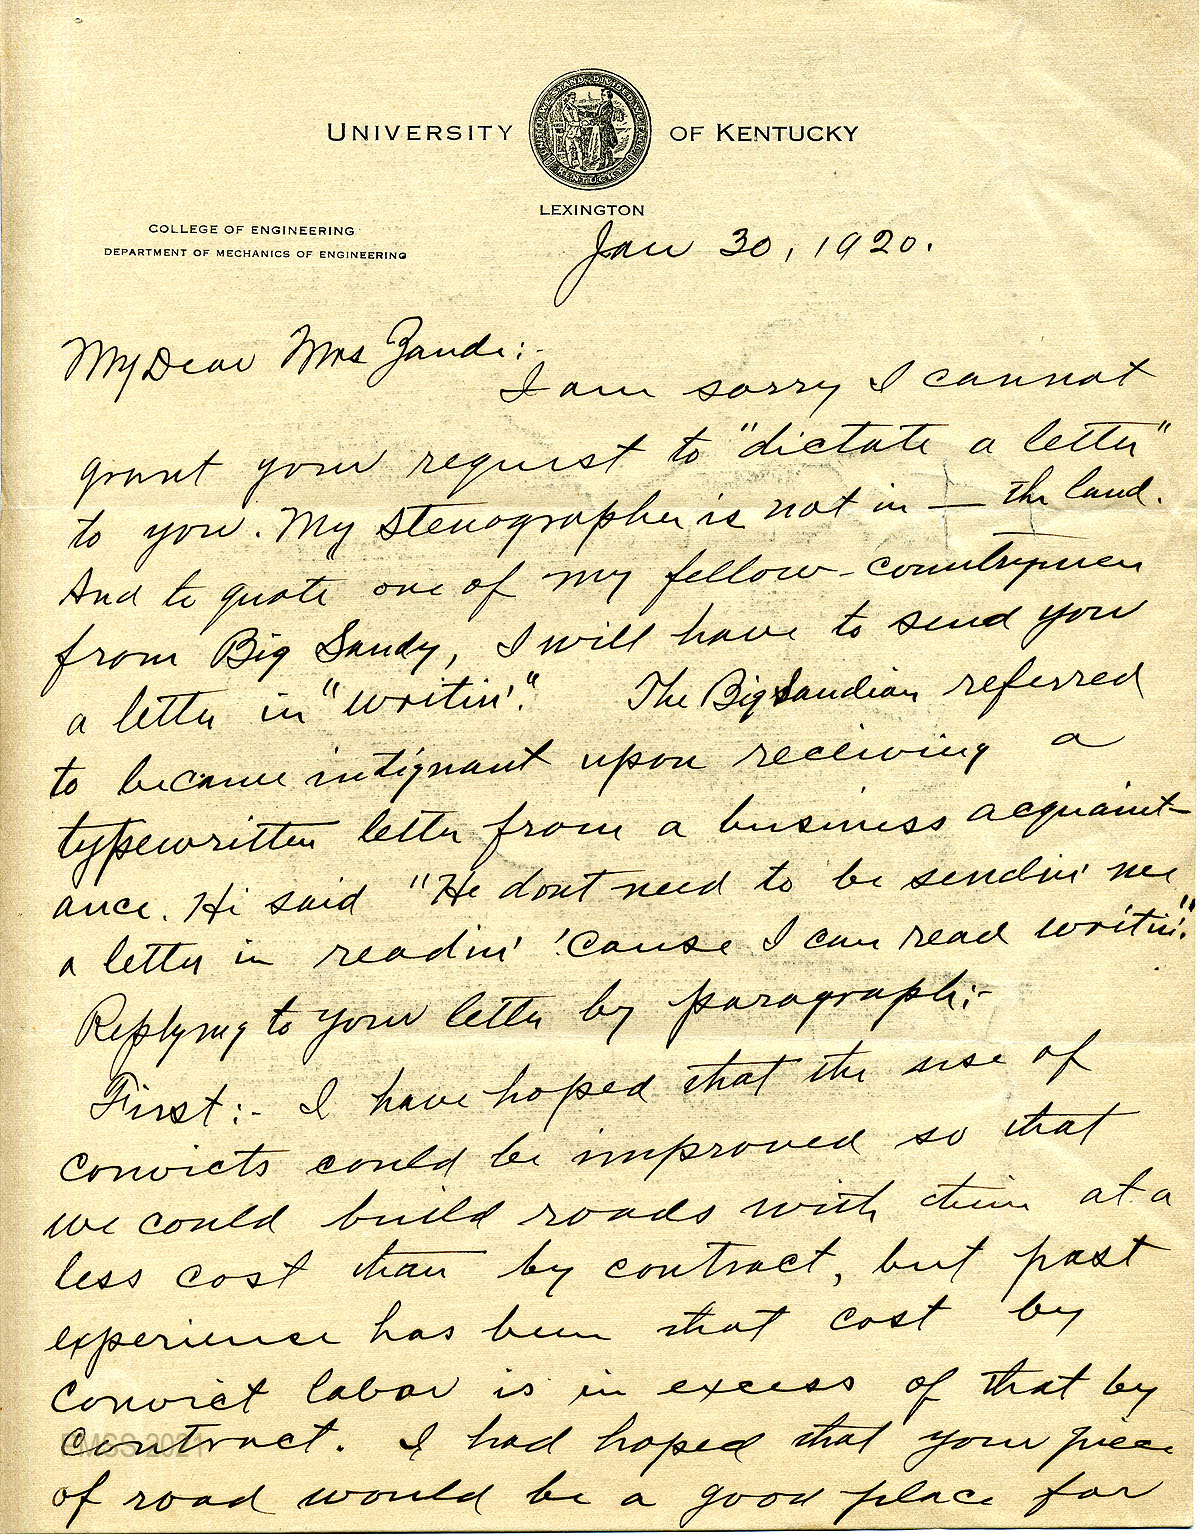 UNIVERSITY OF KENTUCKY
LEXINGTON
COLLEGE OF ENGINEERING
DEPARTMENT OF MECHANICS OF ENGINEERING
Jan 30, 1920.
My Dear Mrs Zande:-
I am sorry I cannot
grant your request to "dictate a letter"
to you. My stenographer is not in — the land.
And to quote one of my fellow-countrymen
from Big Sandy, I will have to send you
a letter in "writin'." The Big Sandian referred
to became indignant upon receiving a
typewritten letter from a business acquaint-
ance. He said "He dont need to be sendin' me
a letter in readin' 'cause I can read writin'."
Replying to your letter by paragraph:-
First:- I have hoped that the use of
convicts could be improved so that
we could build roads with them at a
less cost than by contract, but past
experience has been that cost by
convict labor is in excess of that by
contract. I had hoped that your piece
of road would be a good place for
PMSS 2021